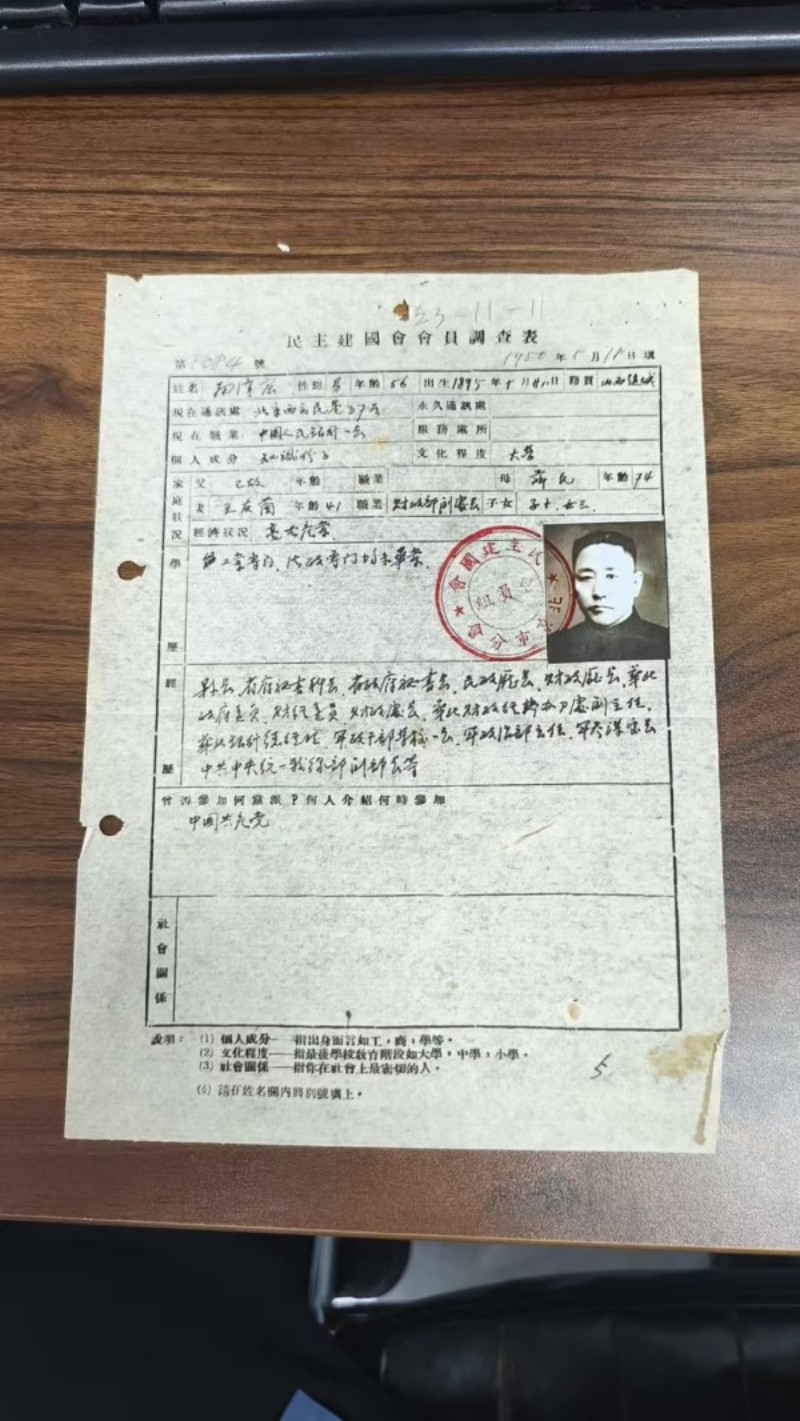 53-11-11
民主建國會會員調查表
第1084號 1950年5月18日填
姓名 南漢宸 性別 男 年齡 56 出生1895年 月 日 籍貫 山西
現在通訊處 北京西 民 37号 永久通訊處
現在職業 中國人民銀行 服務處所
個人成分 知識份子 文化程度 大學
家庭狀況 父 已故 年齡 職業 母 齊氏 年齡 74
妻 王友蘭 年齡 41 職業 財政部副 子女 子 女三
經濟狀況
學歷
工業專門、法政專門 畢業
民主建國會 北京市分會 會員組
經歷
縣長、省府秘书科長、省政府秘书長、民政廳長、财政廳長、華北
政府委員、财经委員、财政處長、華北财政经济办事處副主任、
華北銀行總经理、軍政干部学校 軍政治部主任、軍参謀長
中共中央统一战线部副部長等
曾否參加何黨派?何人介紹何時參加
中國共產党
社會關係
說明:(1) 個人成分——指出身而言如工,商,學等。
(2) 文化程度——指最後學校教育階段如大學,中學,小學。
(3) 社會關係——指你在社會上最密切的人。
(4) 請在姓名欄內將別號填上。
5.